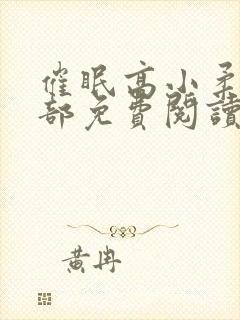 催眠高小柔
部免費閱讀
黃冉